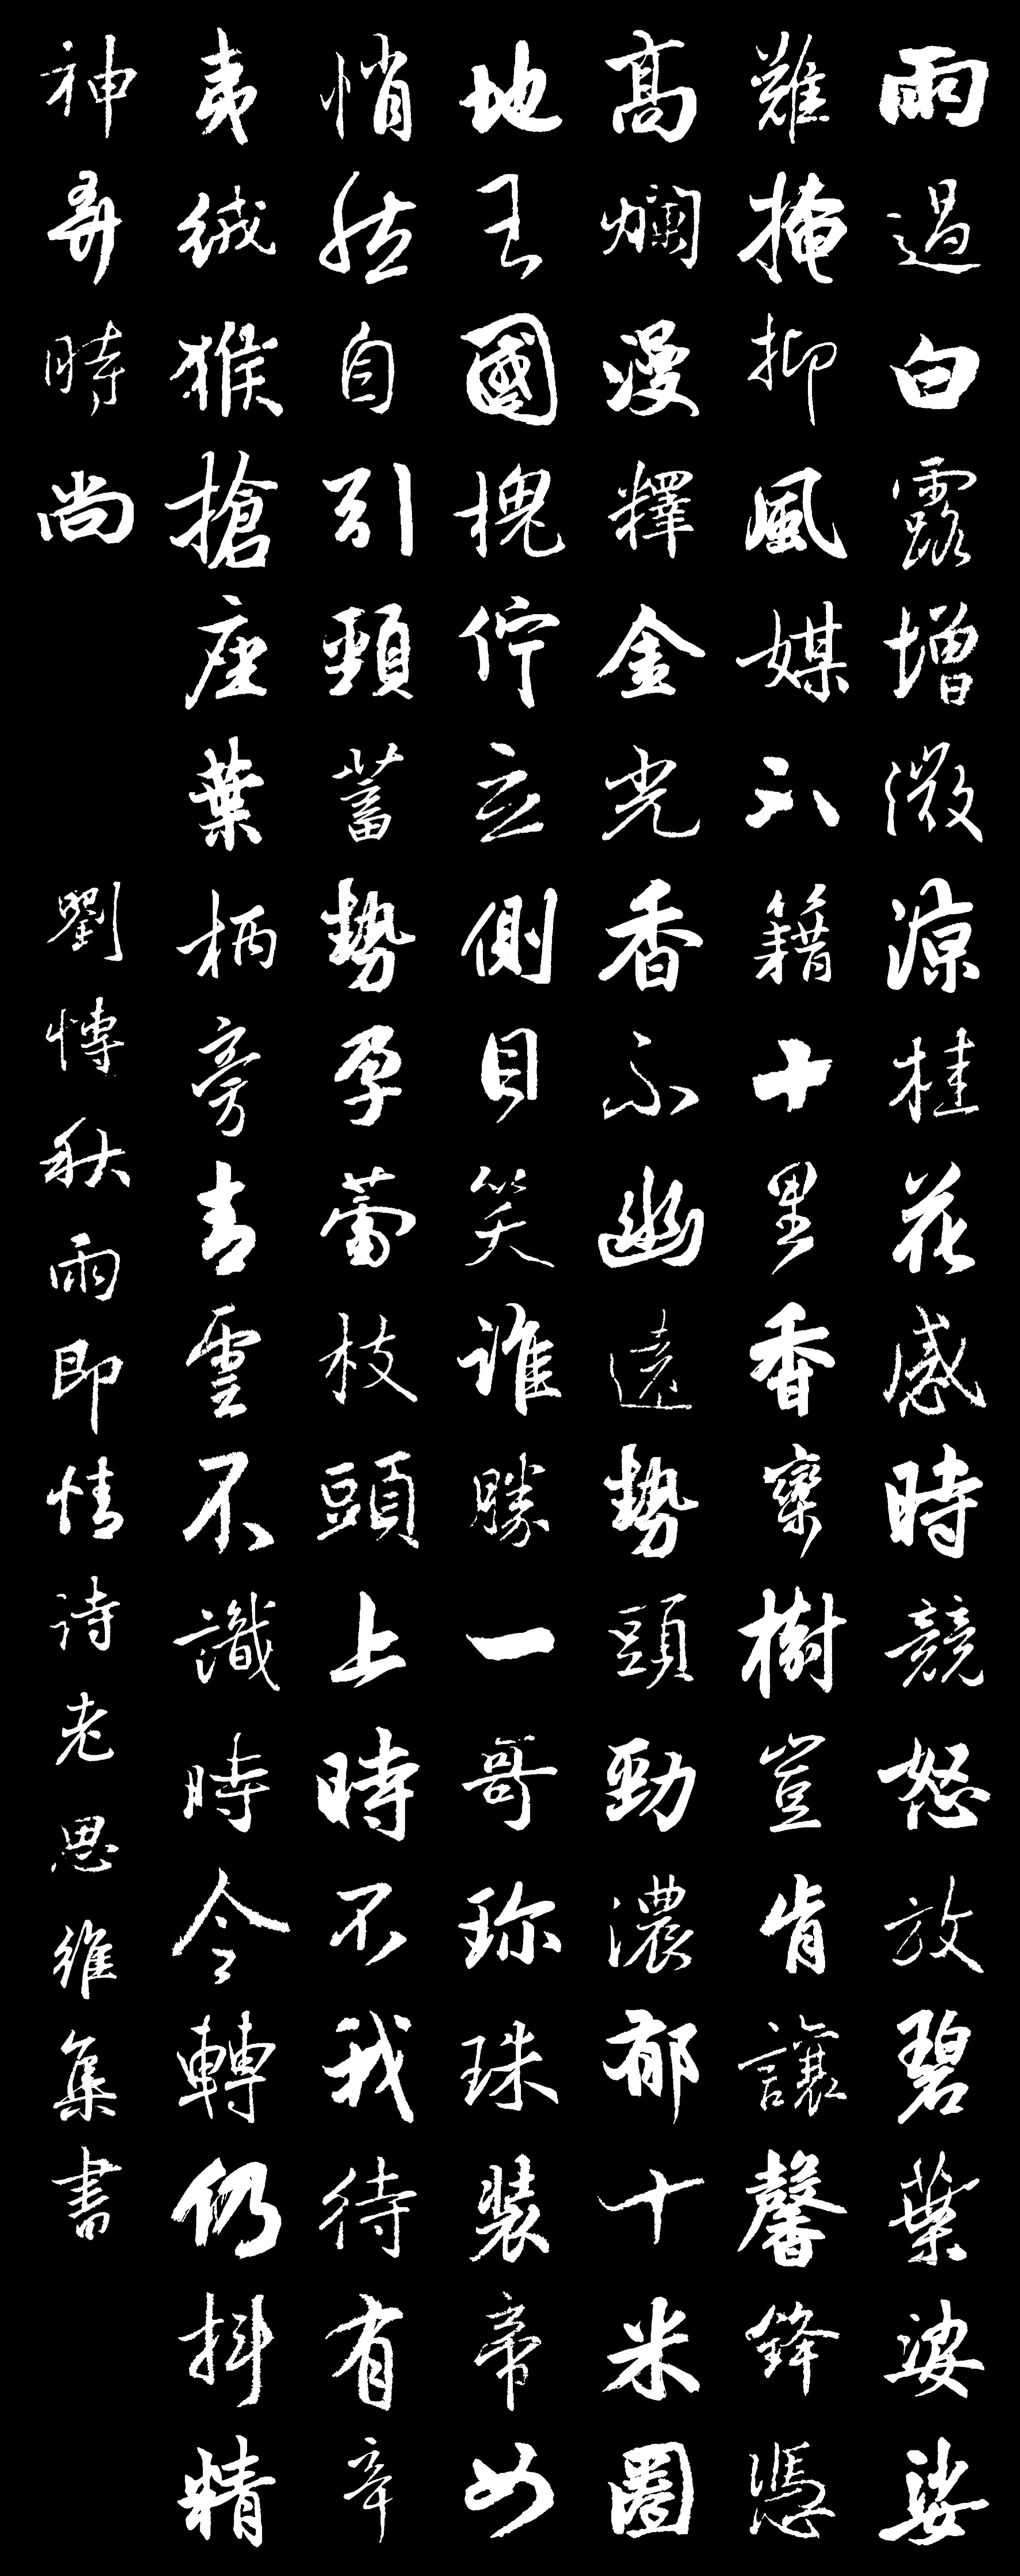 雨過白露增微涼桂花感時競怒放碧葉婆娑
難掩抑風媒不籍十里香欒樹豈肯讓馨鋒憑
高爛漫釋金光香不幽遠勢頭勁濃郁十米圈
地王國槐佇立側目笑誰勝一哥珍珠裝帝女
悄然自引頸蓄勢孕蕾枝頭上時不我待有辛
夷絨猴搶座葉柄旁青雲不識時令轉仍抖精
神弄時尚
劉博秋雨即情詩老思維集書